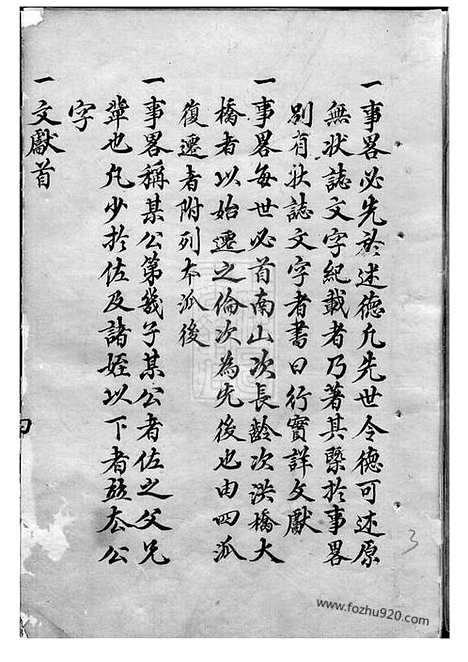 一事畧必先於述德凡先世令德可述原
無狀誌文字紀載者乃著其槩於事畧
別有狀誌文字者書曰行實詳文獻
一事畧每世必首南山次長齡次洪橋大
橋者以始遷之倫次為先後也由四派
復遷者附列本派後
一事畧稱某公第幾子某公者佐之父兄
輩也凡少於佐及諸姪以下者玆不公
字
一文獻首
3
www.fozhu920.com